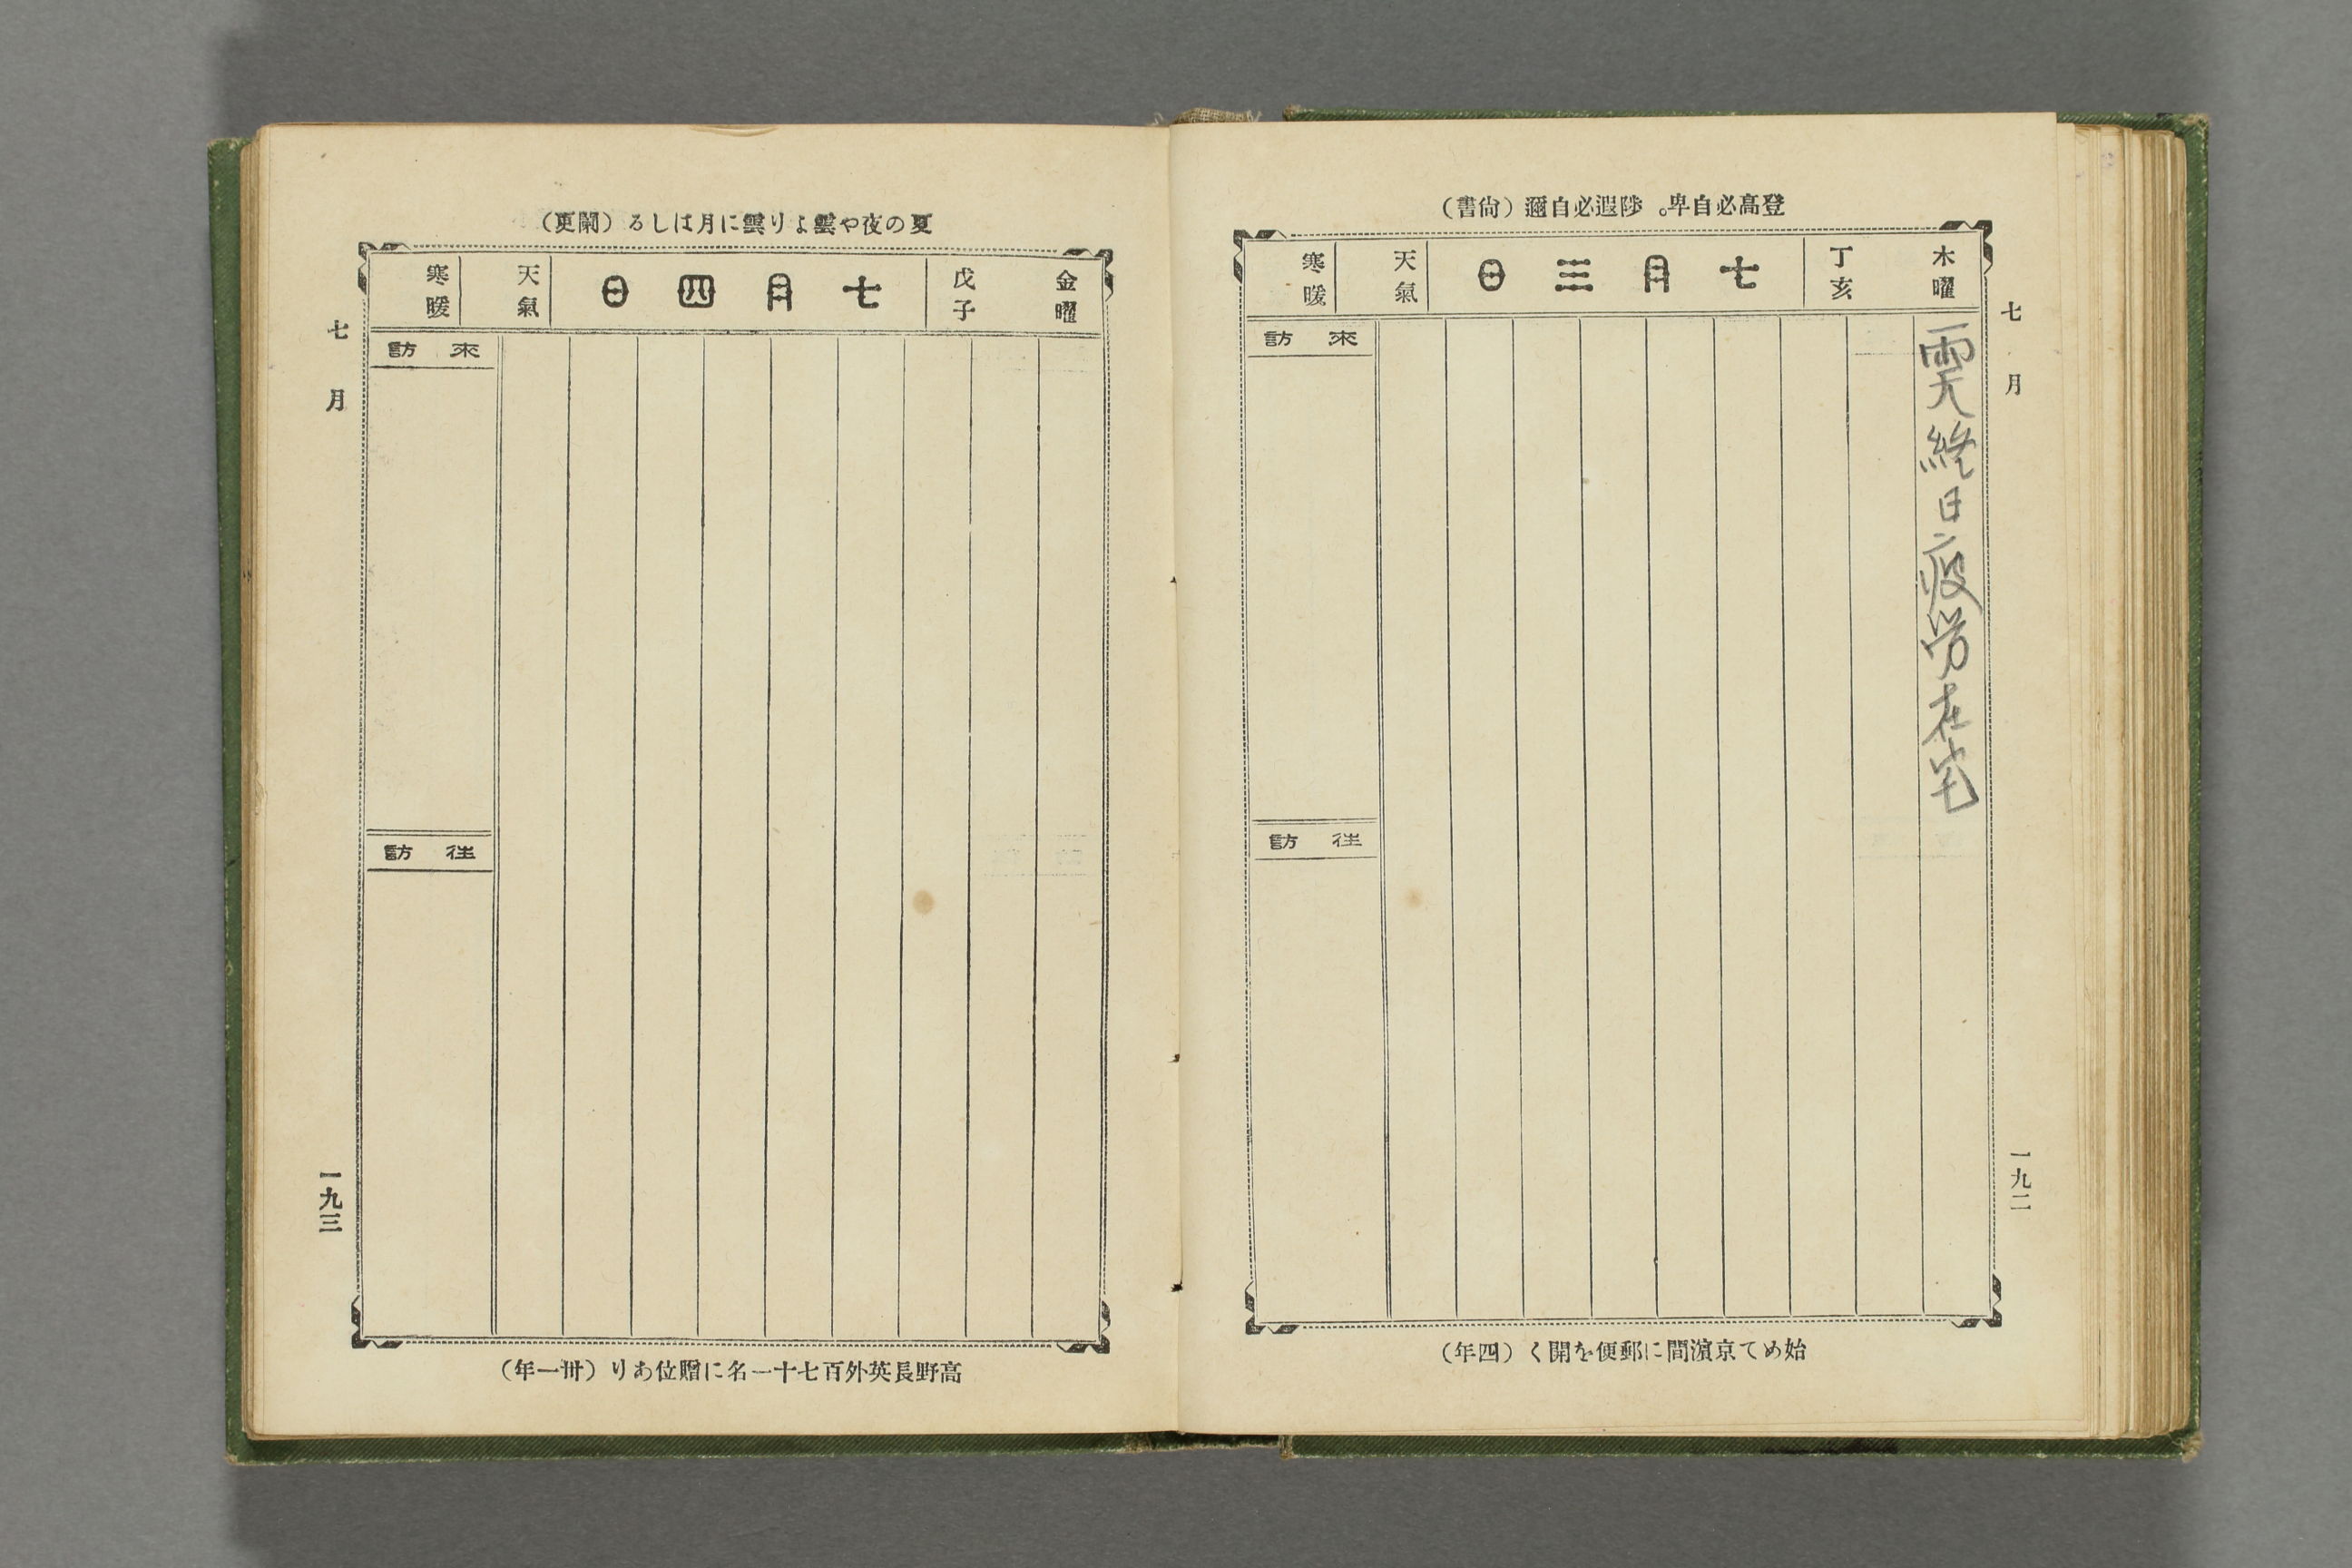 登高必自卑。陟遐必自邇（尙書）
木曜
丁亥
七月三日
天氣
寒暖
七月
雨天終日疲労在宅
來訪
往訪
一九二
始めて京濱間に郵便を開く（四年）
夏の夜や雲より雲に月はしる（闌更）
金曜
戊子
七月四日
天氣
寒暖
來訪
往訪
七月
一九三
高野長英外百七十一名に贈位あり（卅一年）